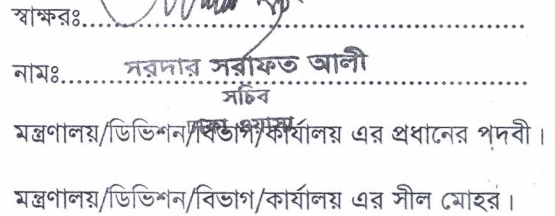 স্বাক্ষরঃ........................................................
নামঃ....... সরদার সরাফত আলী ........................
সচিব
ঢাকা ওয়াসা
মন্ত্রণালয়/ডিভিশন/বিভাগ/কার্যালয় এর প্রধানের পদবী।
মন্ত্রণালয়/ডিভিশন/বিভাগ/কার্যালয় এর সীল মোহর।